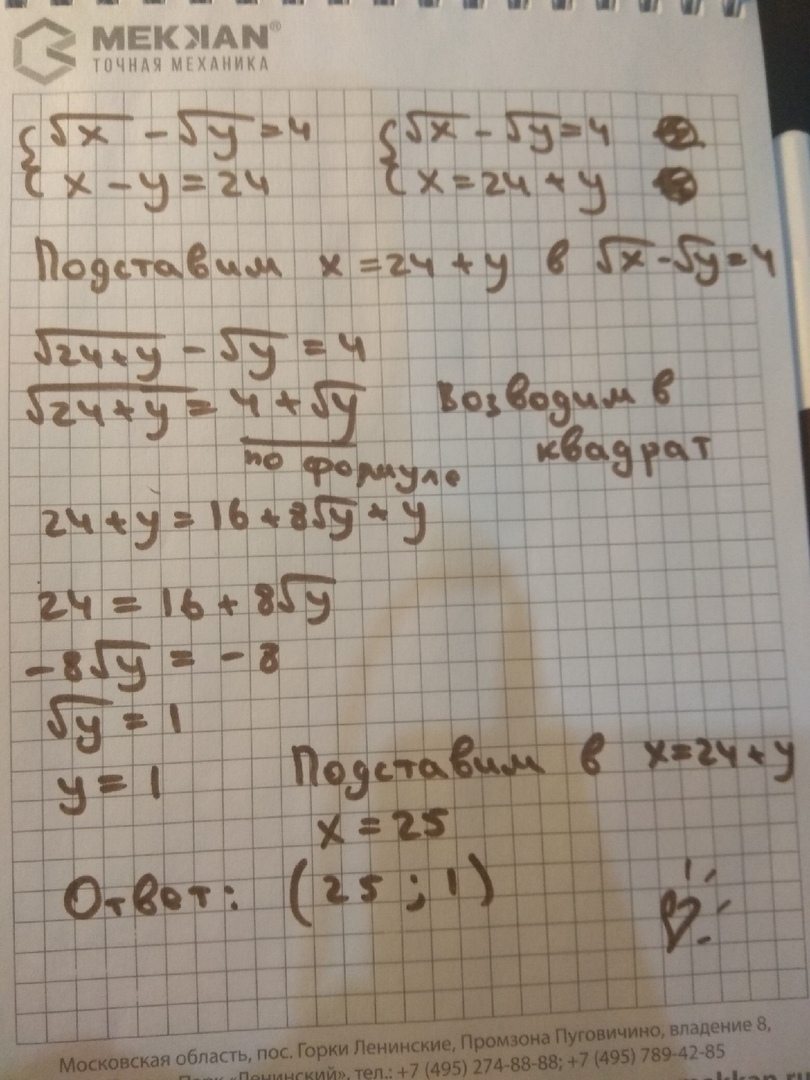 МЕККАН®
ТОЧНАЯ МЕХАНИКА
{√x − √y = 4   {√x − √y = 4
{x − y = 24   {x = 24 + y
Подставим x = 24 + y в √x − √y = 4
√24+y − √y = 4
√24+y = 4 + √y   Возводим в
по формуле   квадрат
24 + y = 16 + 8√y + y
24 = 16 + 8√y
−8√y = −8
√y = 1
y = 1   Подставим в x = 24 + y
x = 25
Ответ: (25 ; 1)
Московская область, пос. Горки Ленинские, Промзона Пуговичино, владение 8,
«Ленинский», тел.: +7 (495) 274-88-88; +7 (495) 789-42-85